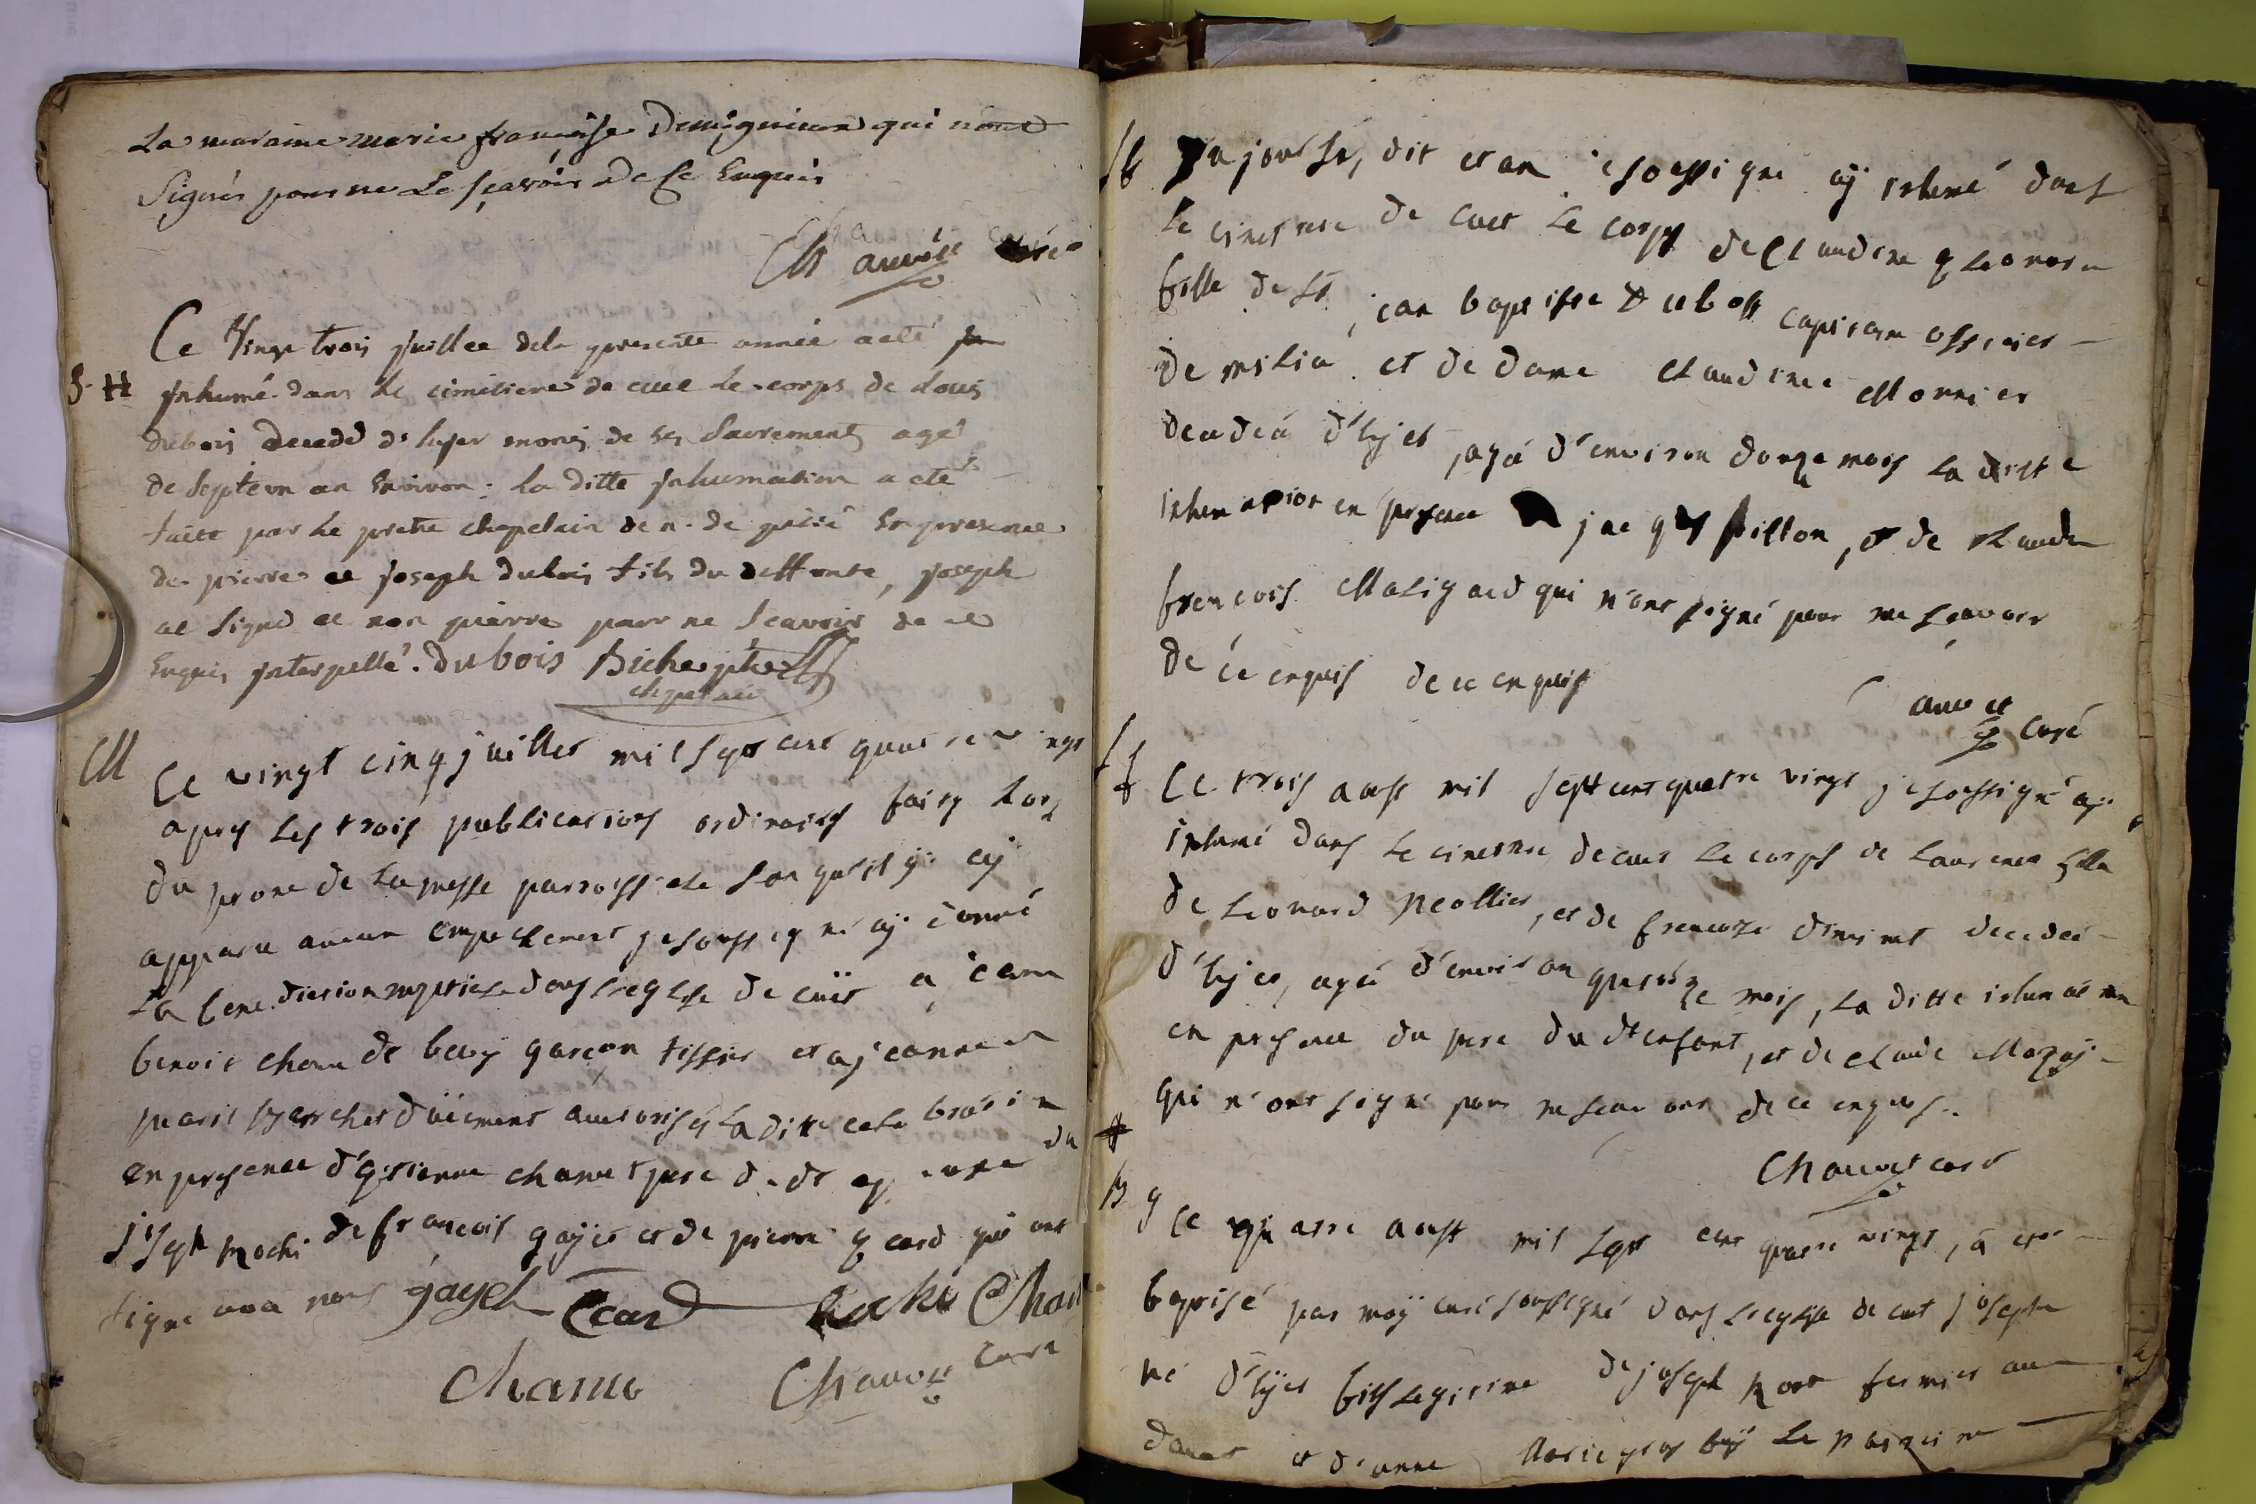 La maraine marie françoise Demignieux qui n'ont
Signés pour ne Le sçavoir De Ce Enquis
Chauvet Curé
Ce Vingt trois juillet de la presente année a eté
S. H inhumé dans le cimitiere de cuet le corps de Louis
dubois decedé d'hyer muni de ses Sacrements agé
de Septente un an Environ : la ditte inhumation a eté
faite par le pretre chapelain de n. de pitié En presence
de pierre et joseph dubois fils du deffunt, joseph
at signé et non pierre pour ne Scavoir de ce
Enquis interpellé. Dubois Biche ptre
M
Ce vingt cinq juillet mil sept cent quatre vingt
apres les trois publications ordinaires faites lors
du prone de la messe parroissiale sans qu'il y ay
apparu aucun empechement je soussigné ay donné
la benediction nuptiale dans l'eglise de cuet a jean
benoit chanut de garçon tissier et a jeanne
duëment autorisés La ditte celebration
en presence d'etienne chanut pere du dt epoux du
joseph Rochi de francois gayet et de pierre ecard qui ont
signé avec nous gayet Ecard Rochi
Chanut Chauvet Curé
Du jour susdit et an je soussigné ay inhumé dans
le cimetiere de cuet le corps de Claudine eleonore
fille de Sr jean baptiste Dubost capitaine officier
de milice et de dame Claudine Monnier
decedée d'hyer, agée d'environ douze mois la ditte
inhumation en presence jacques pillon, et de Claude
francois Maligard qui n'ont signé pour ne scavoir
de ce enquis de ce enquis
Chauvet Curé
Ce trois aoust mil sept cent quatre vingt je soussigné ay
inhumé dans le cimetiere de cuet le corps de Laurence fille
de Leonard et de francoise decedée
d'hyer, agée d'environ quatorze mois, la ditte inhumation
en presence du pere du dt enfant, et de claude
qui n'ont signé pour ne scavoir de ce enquis
Chauvet curé
Ce quatre aoust mil sept cent quatre vingt, a eté
baptisé par moy curé soussigné dans l'eglise de cuet joseph
né d'hyer fils legitime de joseph fermier au
et d'anne Marie le parrain